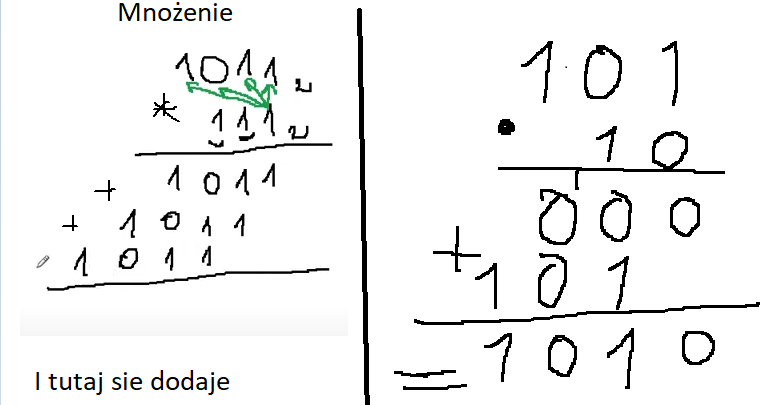 Mnożenie
1011₂
* 111₂
+ 1011
+ 1011
1011
I tutaj sie dodaje
101
• 10
000
+ 101
= 1010